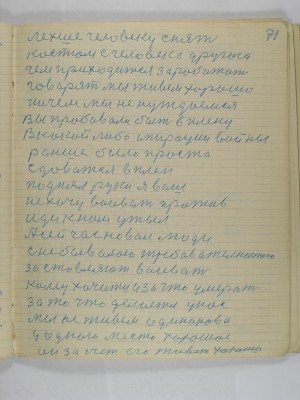 71
лехше человеку снят
костюм с человека другога
чем приходится заработат
говарят мы живем хорошо
ничем мы не нуждаемся
Вы пробовали быт в плену
В какой либо старуши войны
ранше было проста
сдоватся в плен
поднял руки я ваш
не хочу воеват против
иди к ном у тыл
А сейчас новая моди
с небывалою требователностю
заставляют воеват
кому хочити и за что умерат
за то что делется у нас
мы не живем одинакова
у одного место хорошое
он за счет его живет хорошо